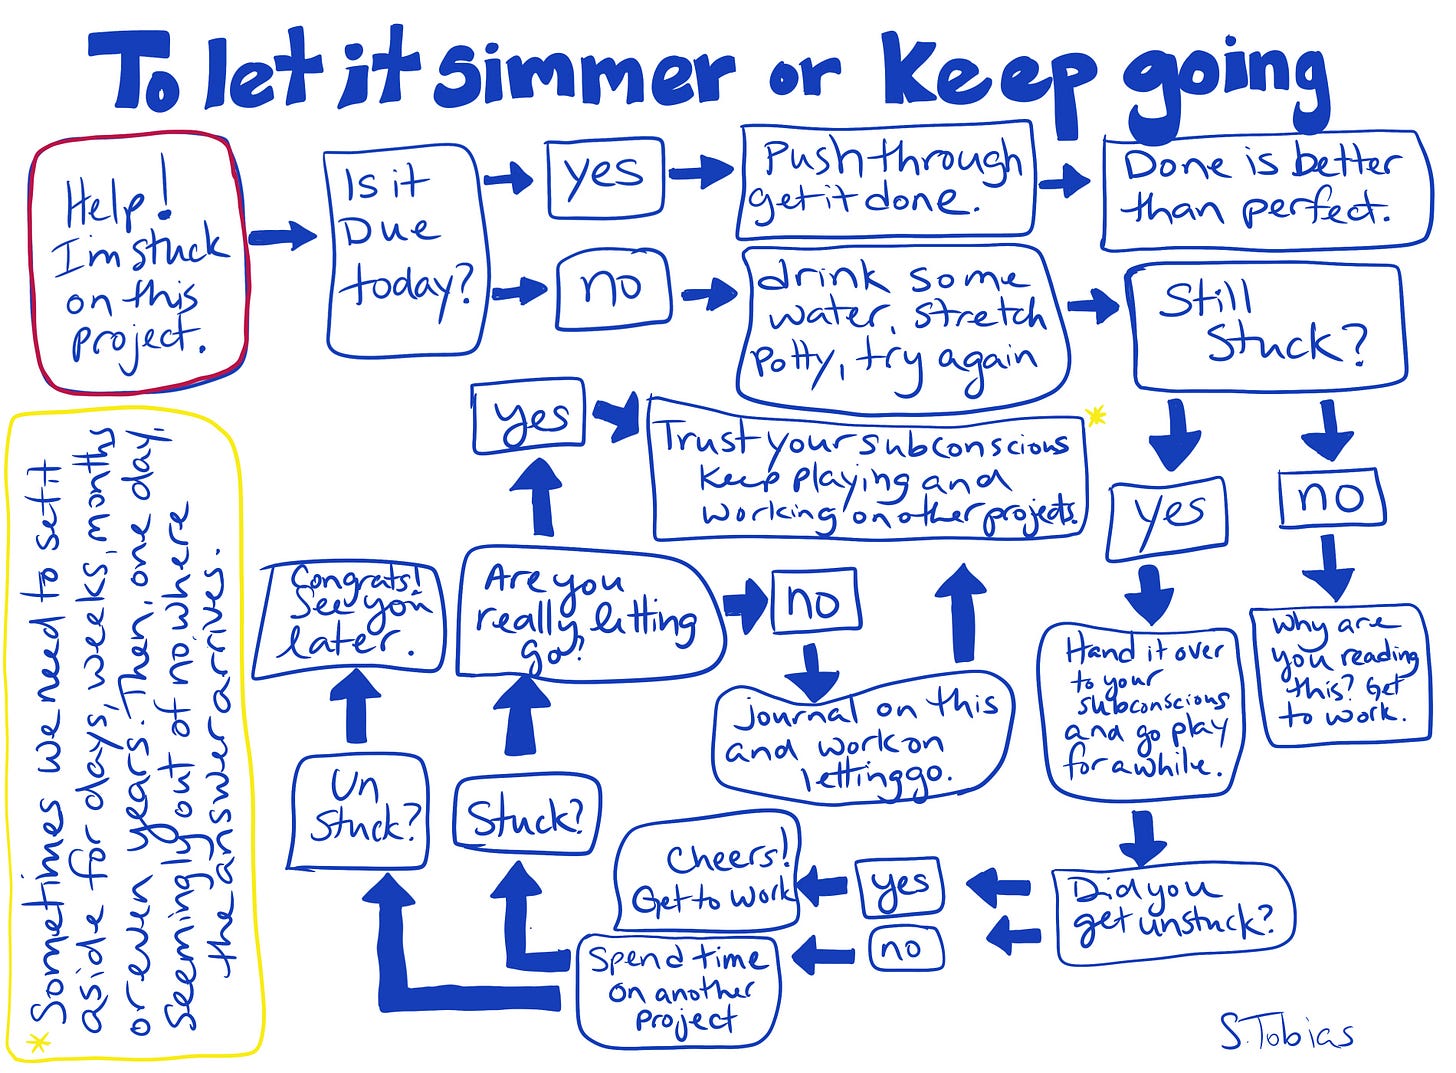 To let it simmer or Keep going
Help!
I'm stuck
on this
project.
Is it
Due
today?
yes
Push through
get it done.
Done is better
than perfect.
no
drink some
water, stretch
potty, try again
Still
Stuck?
yes
no
Why are
you reading
this? Get
to work.
Hand it over
to your
subconscious
and go play
for awhile.
Did you
get unstuck?
yes
Cheers!
Get to work
no
Spend time
on another
project
Un
Stuck?
Congrats!
See you
later.
Stuck?
Are you
really letting
go?
yes
Trust your subconscious
Keep playing and
working on other projects.
no
journal on this
and work on
letting go.
Sometimes we need to set it
aside for days, weeks, months
or even years. Then, one day,
seemingly out of nowhere
the answer arrives.
S.Tobias